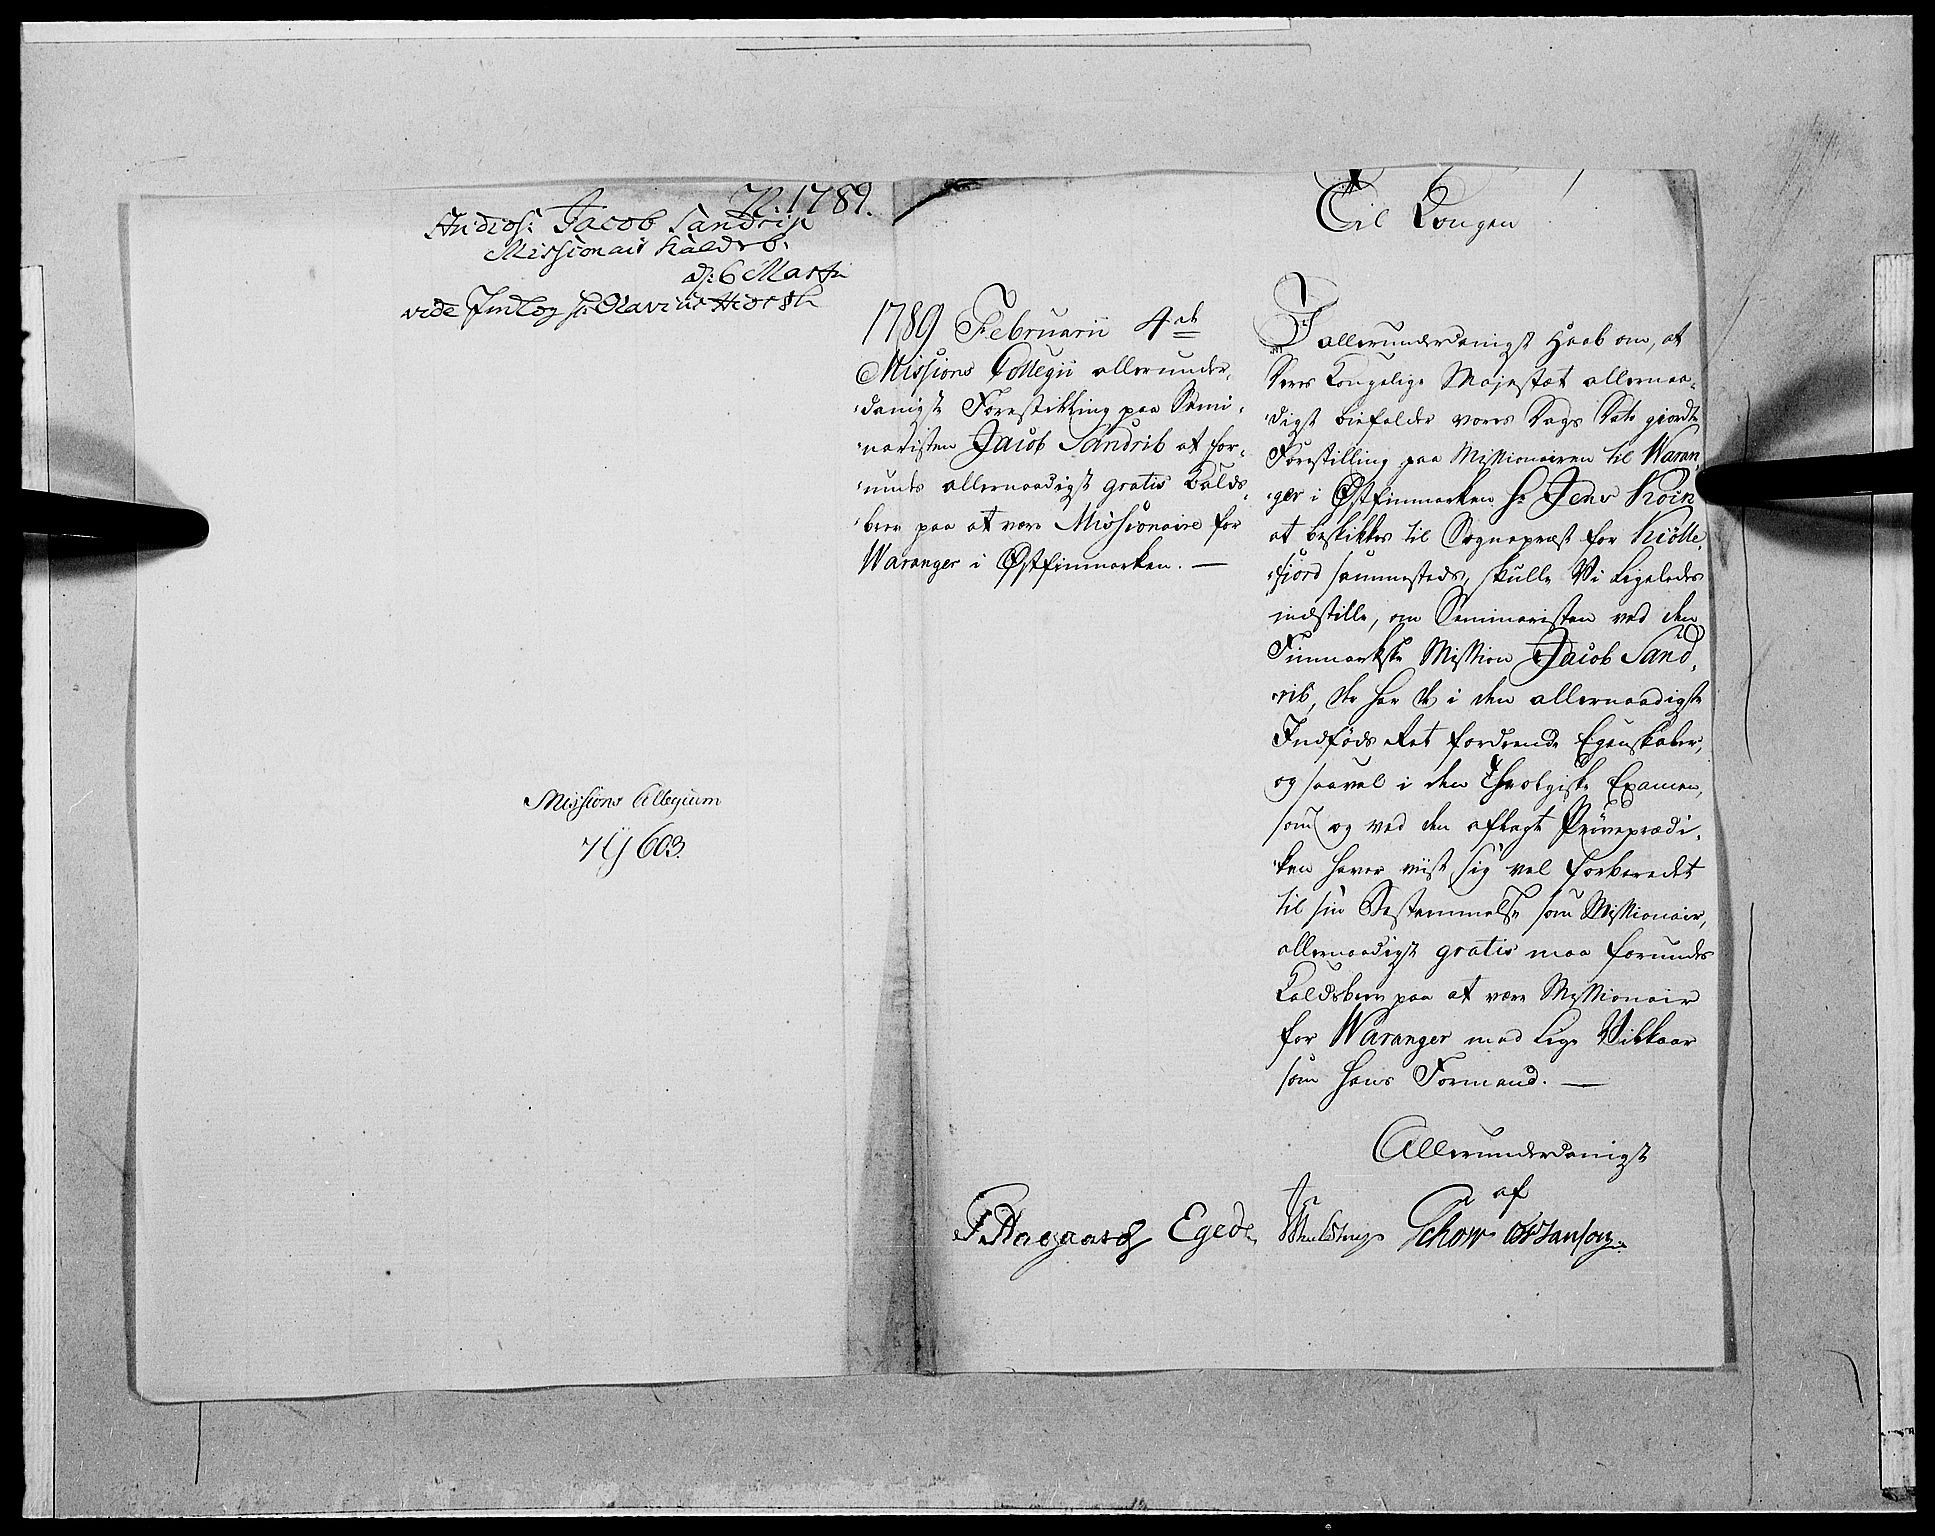 N. 1789.
Studios: Jacob Sandrib
Missionair Kaldsb.
d: 6 Martii
vide Indlæg for Olavius Hiorth
Missions Collegium
603.
Til Kongen
1789 Februarii 4de
Missions Collegii allerunder-
danigste Forestilling paa Semi-
naristen Jacob Sandrib at for-
undes allernaadigst gratis Kalds-
brev paa at være Missionaire for
Waranger i Østfinmarken. —
I allerunderdanigst Haab om, at
Deres Kongelige Majestæt allernaa-
digst bifalder vores Dags Dato giorde
Forestilling paa Missionairen til Waran-
ger i Østfinmarken Hr Jens Koin
at beskikkes til Sognepræst for Kiölle-
fiord sammesteds, skulle Vi ligeledes
indstille, om Seminaristen ved den
Finmarkske Mission Jacob Sand-
rib, der har de i den allernaadigste
Indføds Ret fordrende Egenskaber,
og saavel i den Theologiske Examen,
som og ved den aflagte Prøveprædi-
ken haver viist sig vel forberedet
til sin Bestemmelse som Missionair,
allernaadigst gratis maa forundes
Kaldsbrev paa at være Missionair
for Waranger med lige Vilkaar
som hans Formand. —
Allerunderdanigst
af
Egede Schow